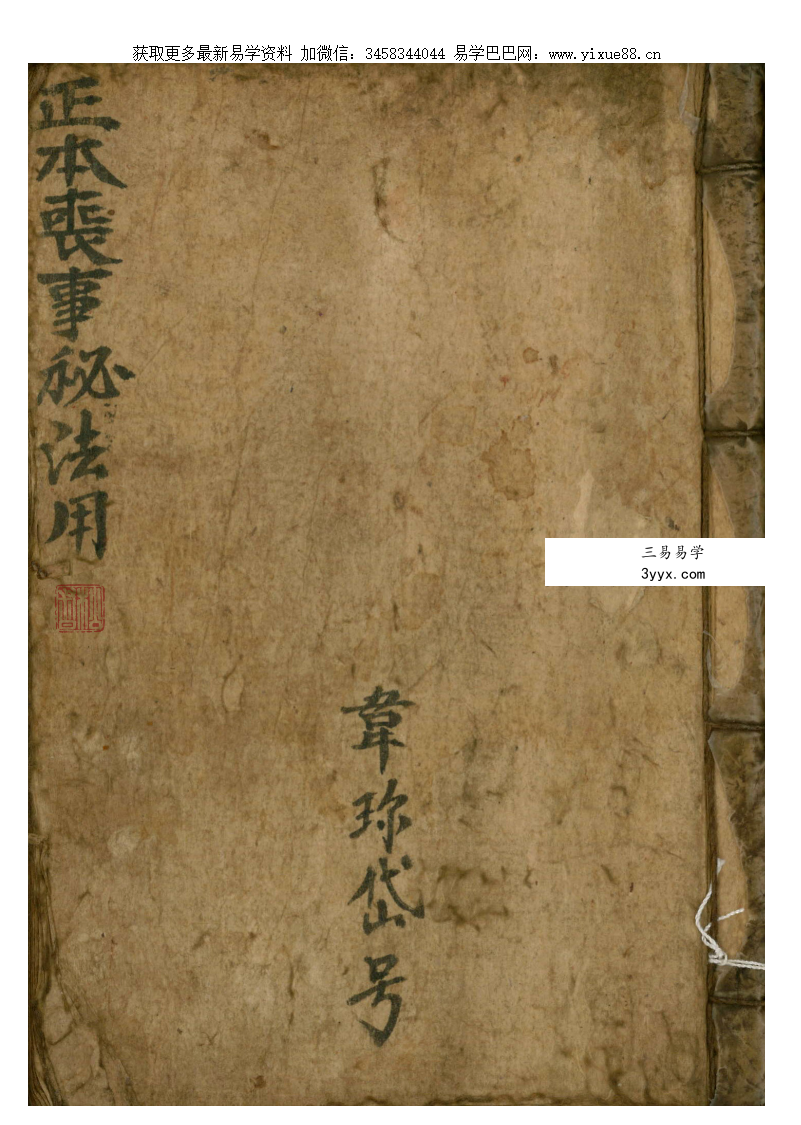 获取更多最新易学资料 加微信：3458344044 易学巴巴网：www.yixue88.cn
正本喪事秘法用
三易易学
3yyx.com
韋珎岱号